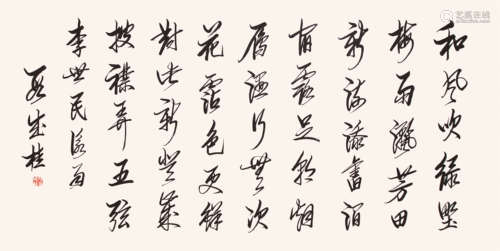 和風吹綠埜
梅雨灑芳田
新流添舊澗
宿霧足朝烟
鴈濕行無次
花霑色更鮮
對此新登歲
披襟弄五弦
李世民詠雨
成桂